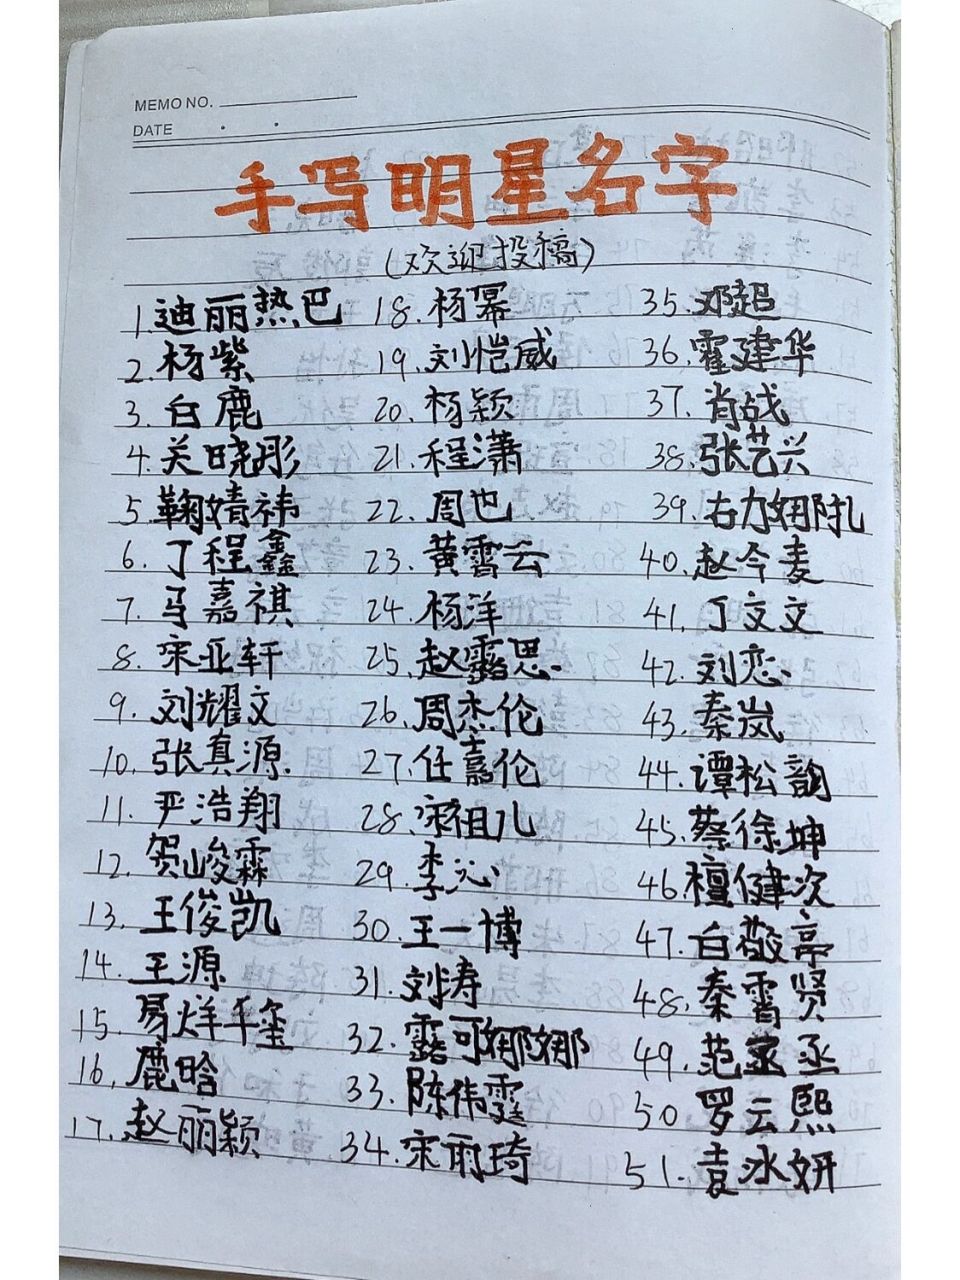 MEMO NO.
DATE
手写明星名字
(欢迎投稿)
1.迪丽热巴
2.杨紫
3.白鹿
4.关晓彤
5.鞠婧祎
6.丁程鑫
7.马嘉祺
8.宋亚轩
9.刘耀文
10.张真源
11.严浩翔
12.贺峻霖
13.王俊凯
14.王源
15.易烊千玺
16.鹿晗
17.赵丽颖
18.杨幂
19.刘恺威
20.杨颖
21.程潇
22.周也
23.黄霄云
24.杨洋
25.赵露思
26.周杰伦
27.任嘉伦
28.宋祖儿
29.李沁
30.王一博
31.刘涛
32.露可娜娜
33.陈伟霆
34.宋雨琦
35.邓超
36.霍建华
37.肖战
38.张艺兴
39.古力娜扎
40.赵今麦
41.丁文文
42.刘恋
43.秦岚
44.谭松韵
45.蔡徐坤
46.檀健次
47.白敬亭
48.秦霄贤
49.范丞丞
50 罗云熙
51.袁冰妍